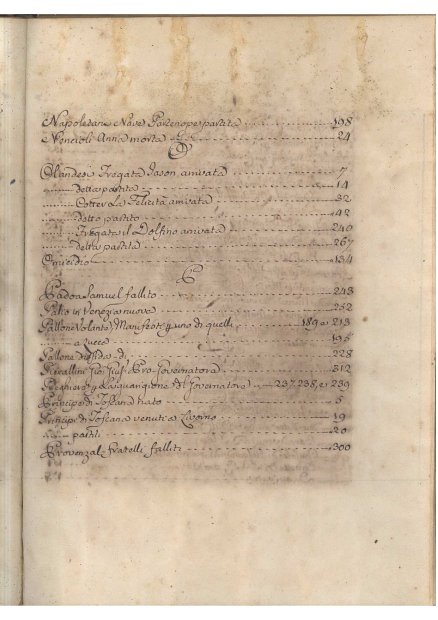 Napoletana Nave Partenope partita 198
Nencioli Anna morta 24
O
Olandesi Fregata Jason arrivata 7
Detta partita 14
Cotter La Felicità arrivata 32
Detto partito 42
Fregata il Dolfino arrivata 240
detta partita 267
Omicidio 134
P
Padoa Samuel fallito 243
Palio in Venezia nuova 252
Pallone Volante, Manifesto uno di quelli 189 e 213
a fuoco 195
Pallone 228
Pierallini Pro-Governatore 312
Preghiere guarigione del Governatore 237, 238, e 239
Principe di Toscana nato 5
Principi di Toscana venuti a Livorno 19
partiti 20
Provenzal fratelli falliti 300